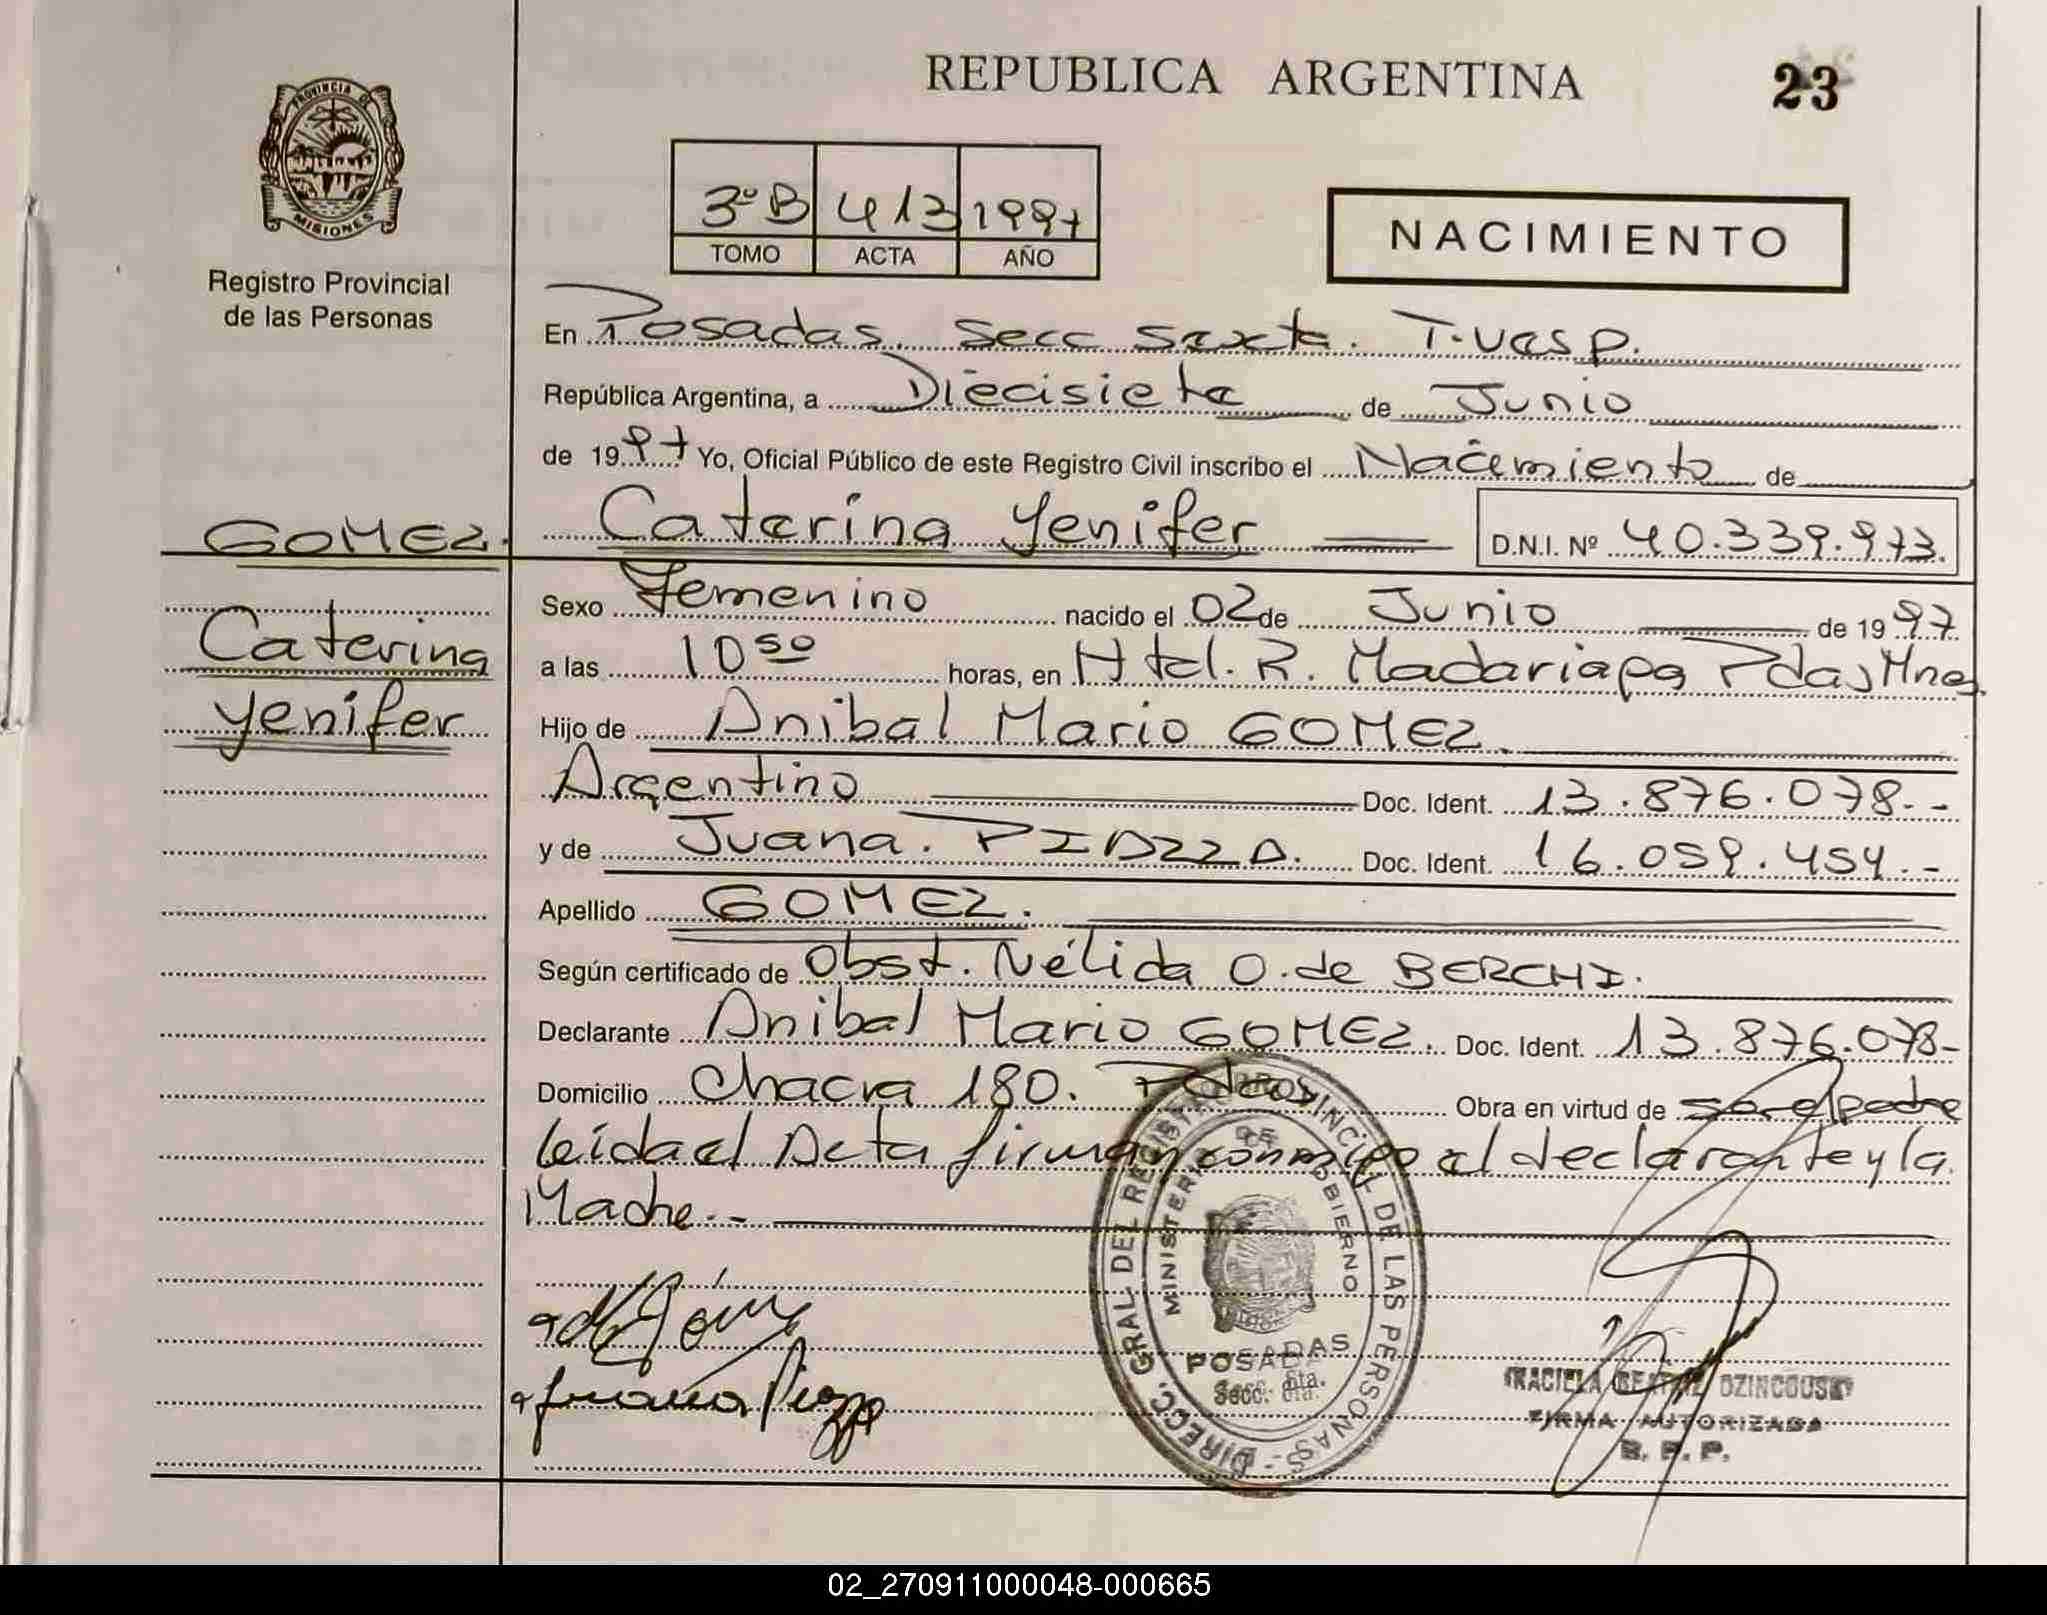 REPUBLICA ARGENTINA
23
PROVINCIA DE
MISIONES
Registro Provincial
de las Personas
3º B 413 1997
TOMO ACTA AÑO
NACIMIENTO
En Posadas. Secc Sexta. T. Vesp.
República Argentina, a Diecisiete de Junio
de 1997 Yo, Oficial Público de este Registro Civil inscribo el Nacimiento de
GOMEZ. Caterina Yenifer D.N.I. Nº 40.339.973.
Sexo Femenino nacido el 02 de Junio de 1997
Caterina
a las 10 50 horas, en Htal. R. Madariaga Pdas Mnes.
Yenifer
Hijo de Anibal Mario GOMEZ.
Argentino Doc. Ident. 13.876.078.-
y de Juana. PIAZZA. Doc. Ident. 16.059.454.-
Apellido GOMEZ.
Según certificado de Obst. Nélida O. de BERCHI.
Declarante Anibal Mario GOMEZ. Doc. Ident. 13.876.078-
Domicilio Chacra 180. Pdas. Obra en virtud de ser el padre
leída el Acta firman conmigo el declarante y la
Madre.-
Juana Piazza
DIRECC. GRAL DEL REGISTRO PROVINCIAL DE LAS PERSONAS -
MINISTERIO DE GOBIERNO
POSADAS
Secc. 6ta.
GRACIELA BEATRIZ OZINCOUSKY
FIRMA AUTORIZADA
R. P. P.
02_270911000048-000665